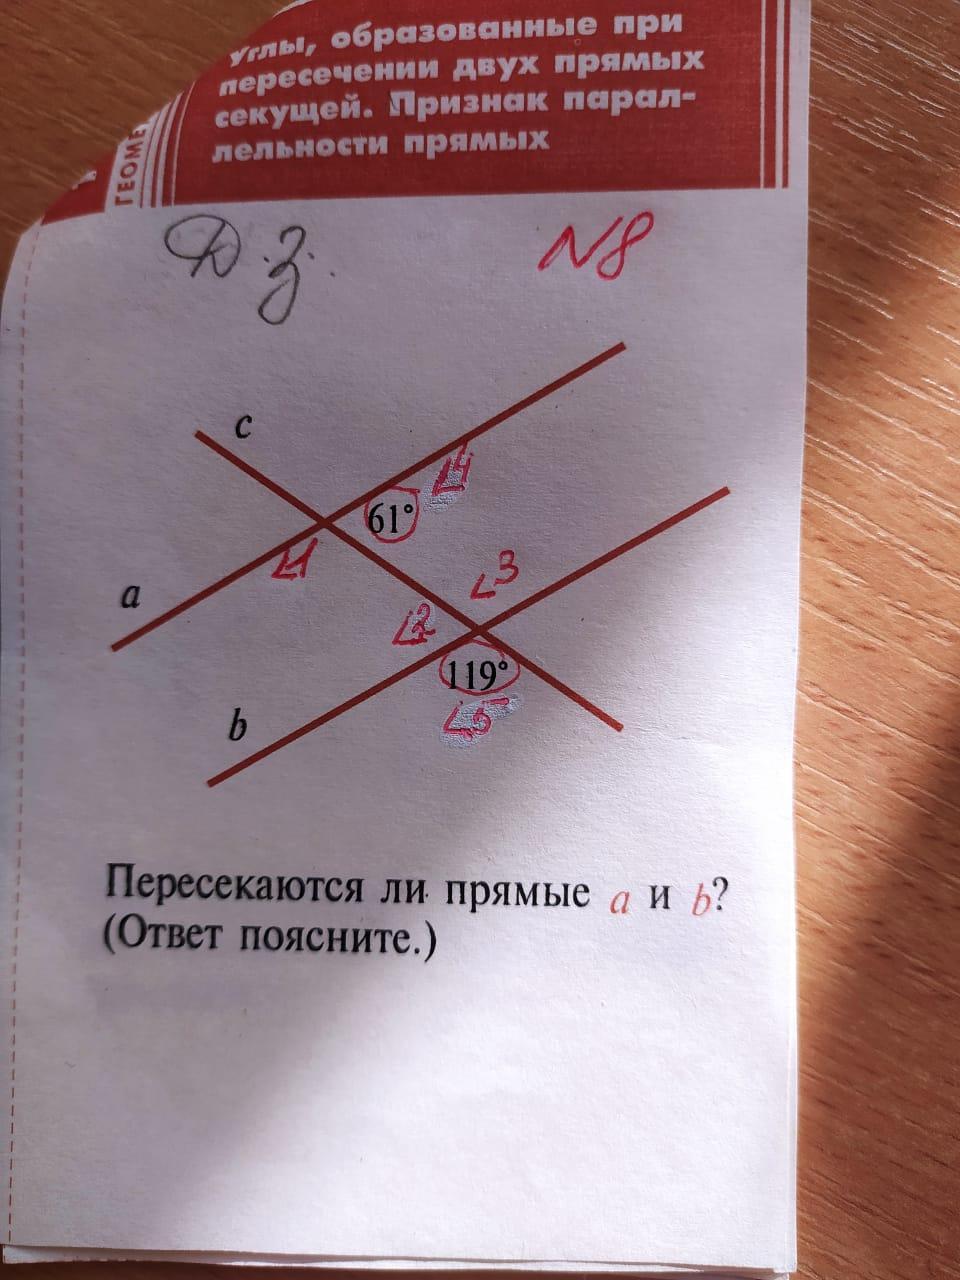 Углы, образованные при
пересечении двух прямых
секущей. Признак парал-
лельности прямых
ГЕОМЕ
Д.З.
N8
c
∠4
61°
∠1
∠3
a
∠2
119°
∠5
b
Пересекаются ли прямые a и b?
(Ответ поясните.)